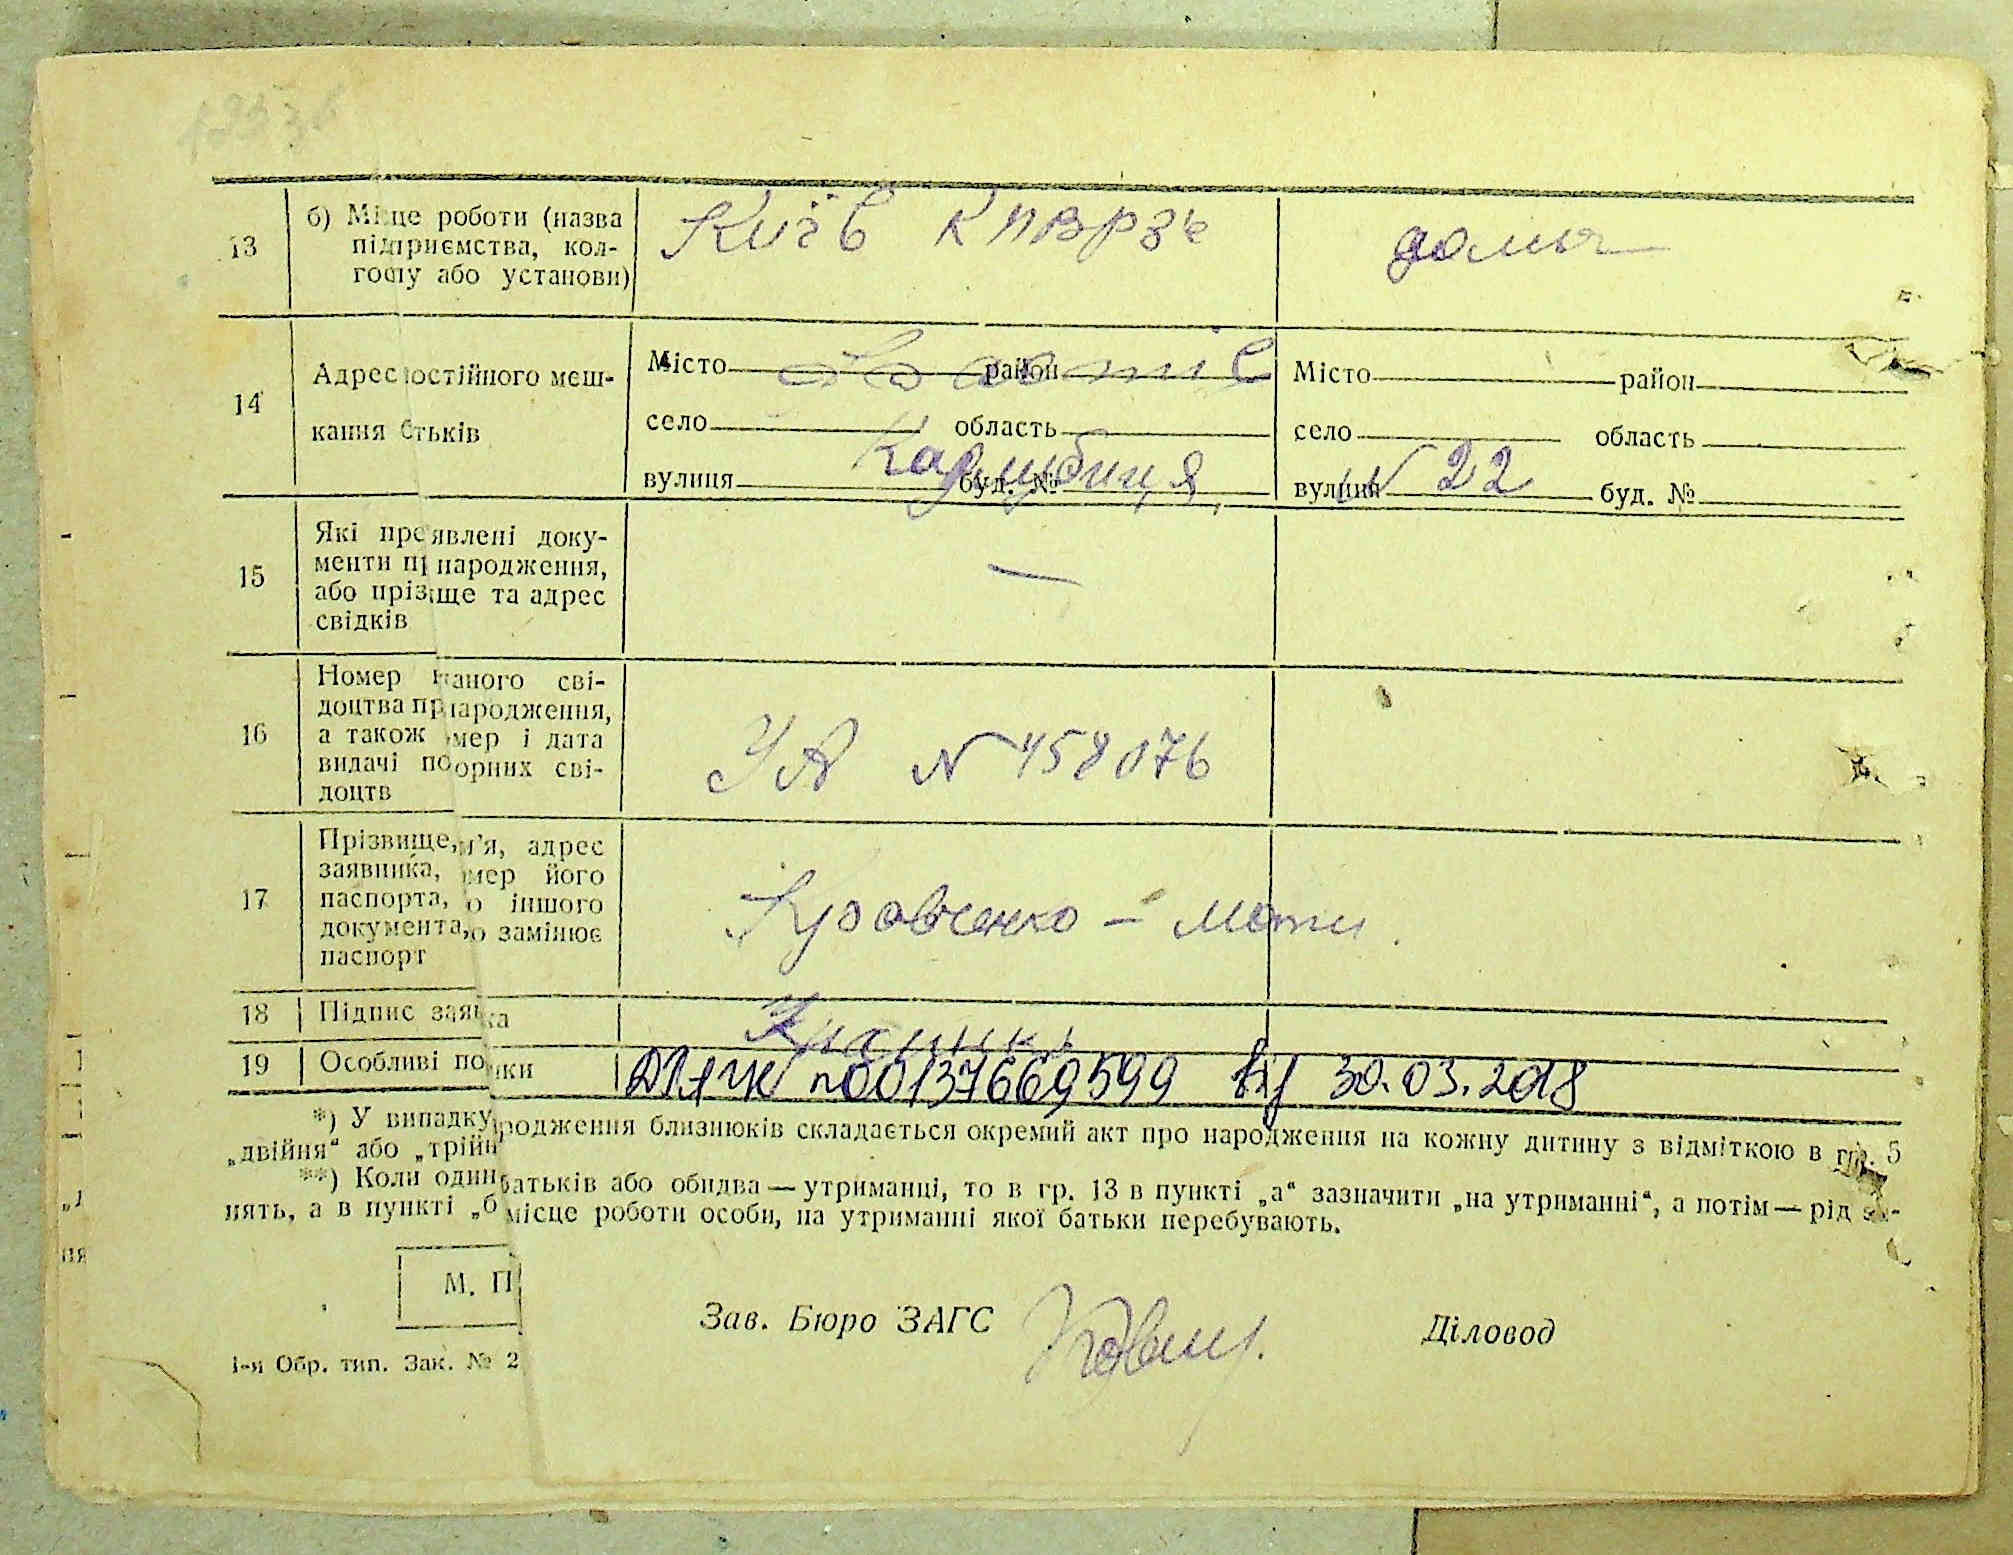 13
б) Місце роботи (назва
підприємства, кол-
госпу або установи)
Київ КПВРЗ
дома
14
Адрес постійного меш-
кання батьків
Місто район
село область
вулиця буд. №
Місто район
село область
вулиця № 22 буд. №
15
Які пре явлені доку-
менти п народження,
або прізвище та адрес
свідків
—
16
Номер ваного сві-
доцтва пр народження,
а також омер і дата
видачі по орних сві-
доцтв
УА № 458076
17
Прізвище, м'я, адрес
заявника, омер його
паспорта, о іншого
документа, о замінює
паспорт
Кравченко – мати.
18
Підпис заяв ка
19
Особливі по чки
№00137669599 від 30.03.2018
*) У випадку родження близнюків складається окремий акт про народження на кожну дитину з відміткою в гр. 5
„двійня“ або „трійн
**) Коли один батьків або обидва — утриманці, то в гр. 13 в пункті „а“ зазначити „на утриманні“, а потім — рід за-
нять, а в пункті „б місце роботи особи, на утриманні якої батьки перебувають.
М. П
Зав. Бюро ЗАГС
Діловод
1-я Обр. тип. Зак. № 2